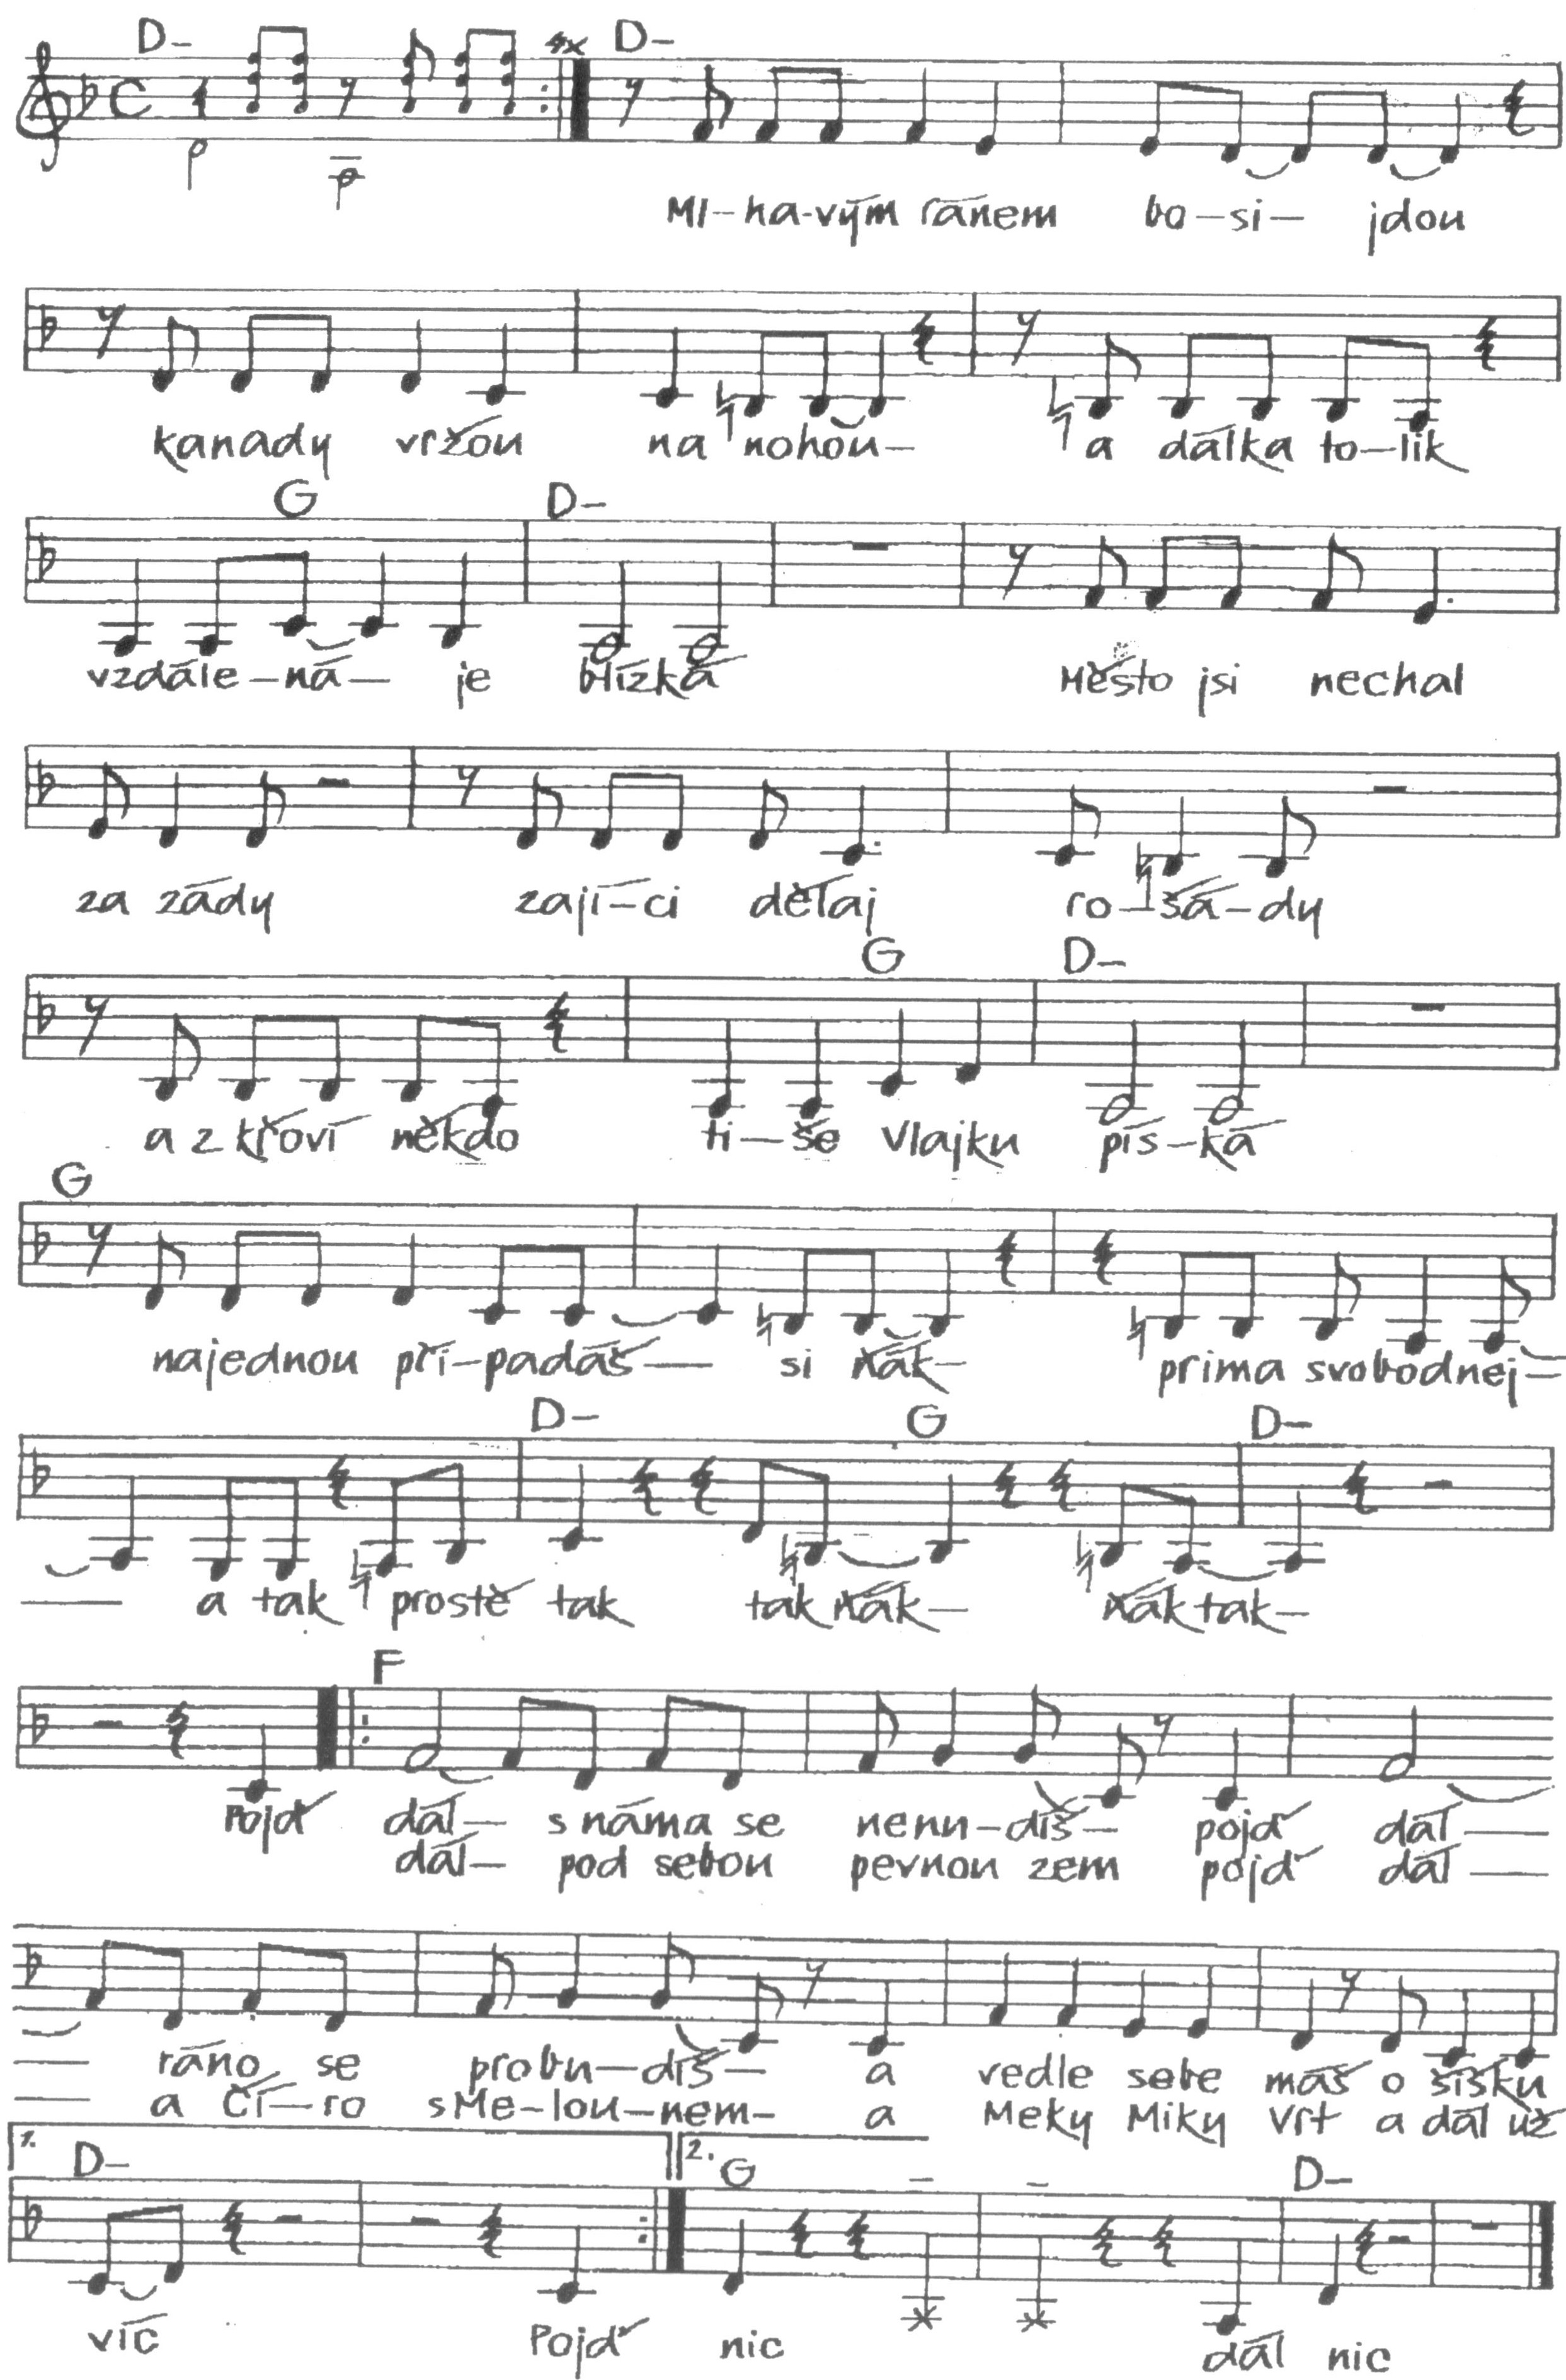 D- 4x D-
Ml-ha-vým ránem bo-si- jdou
kanady vržou na nohou- a dálka to-lik
G D-
vzdále-ná- je blízká Město jsi nechal
za zády zají-ci dělaj ro-šá-dy
G D-
a z křoví někdo ti-še Vlajku pís-ká
G
najednou pří-padáš- si ňák- prima svobodnej-
D- G D-
a tak prostě tak tak ňák- ňák tak-
F
Pojď dál- s náma se nenu-díš- pojď dál-
dál- pod sebou pevnou zem pojď dál-
ráno se probu-díš- a vedle sebe máš o šišku
a Čí-ro s Me-lou-nem- a Meky Miky Vrt a dál už
1. D- 2. G D-
víc Pojď nic dál nic